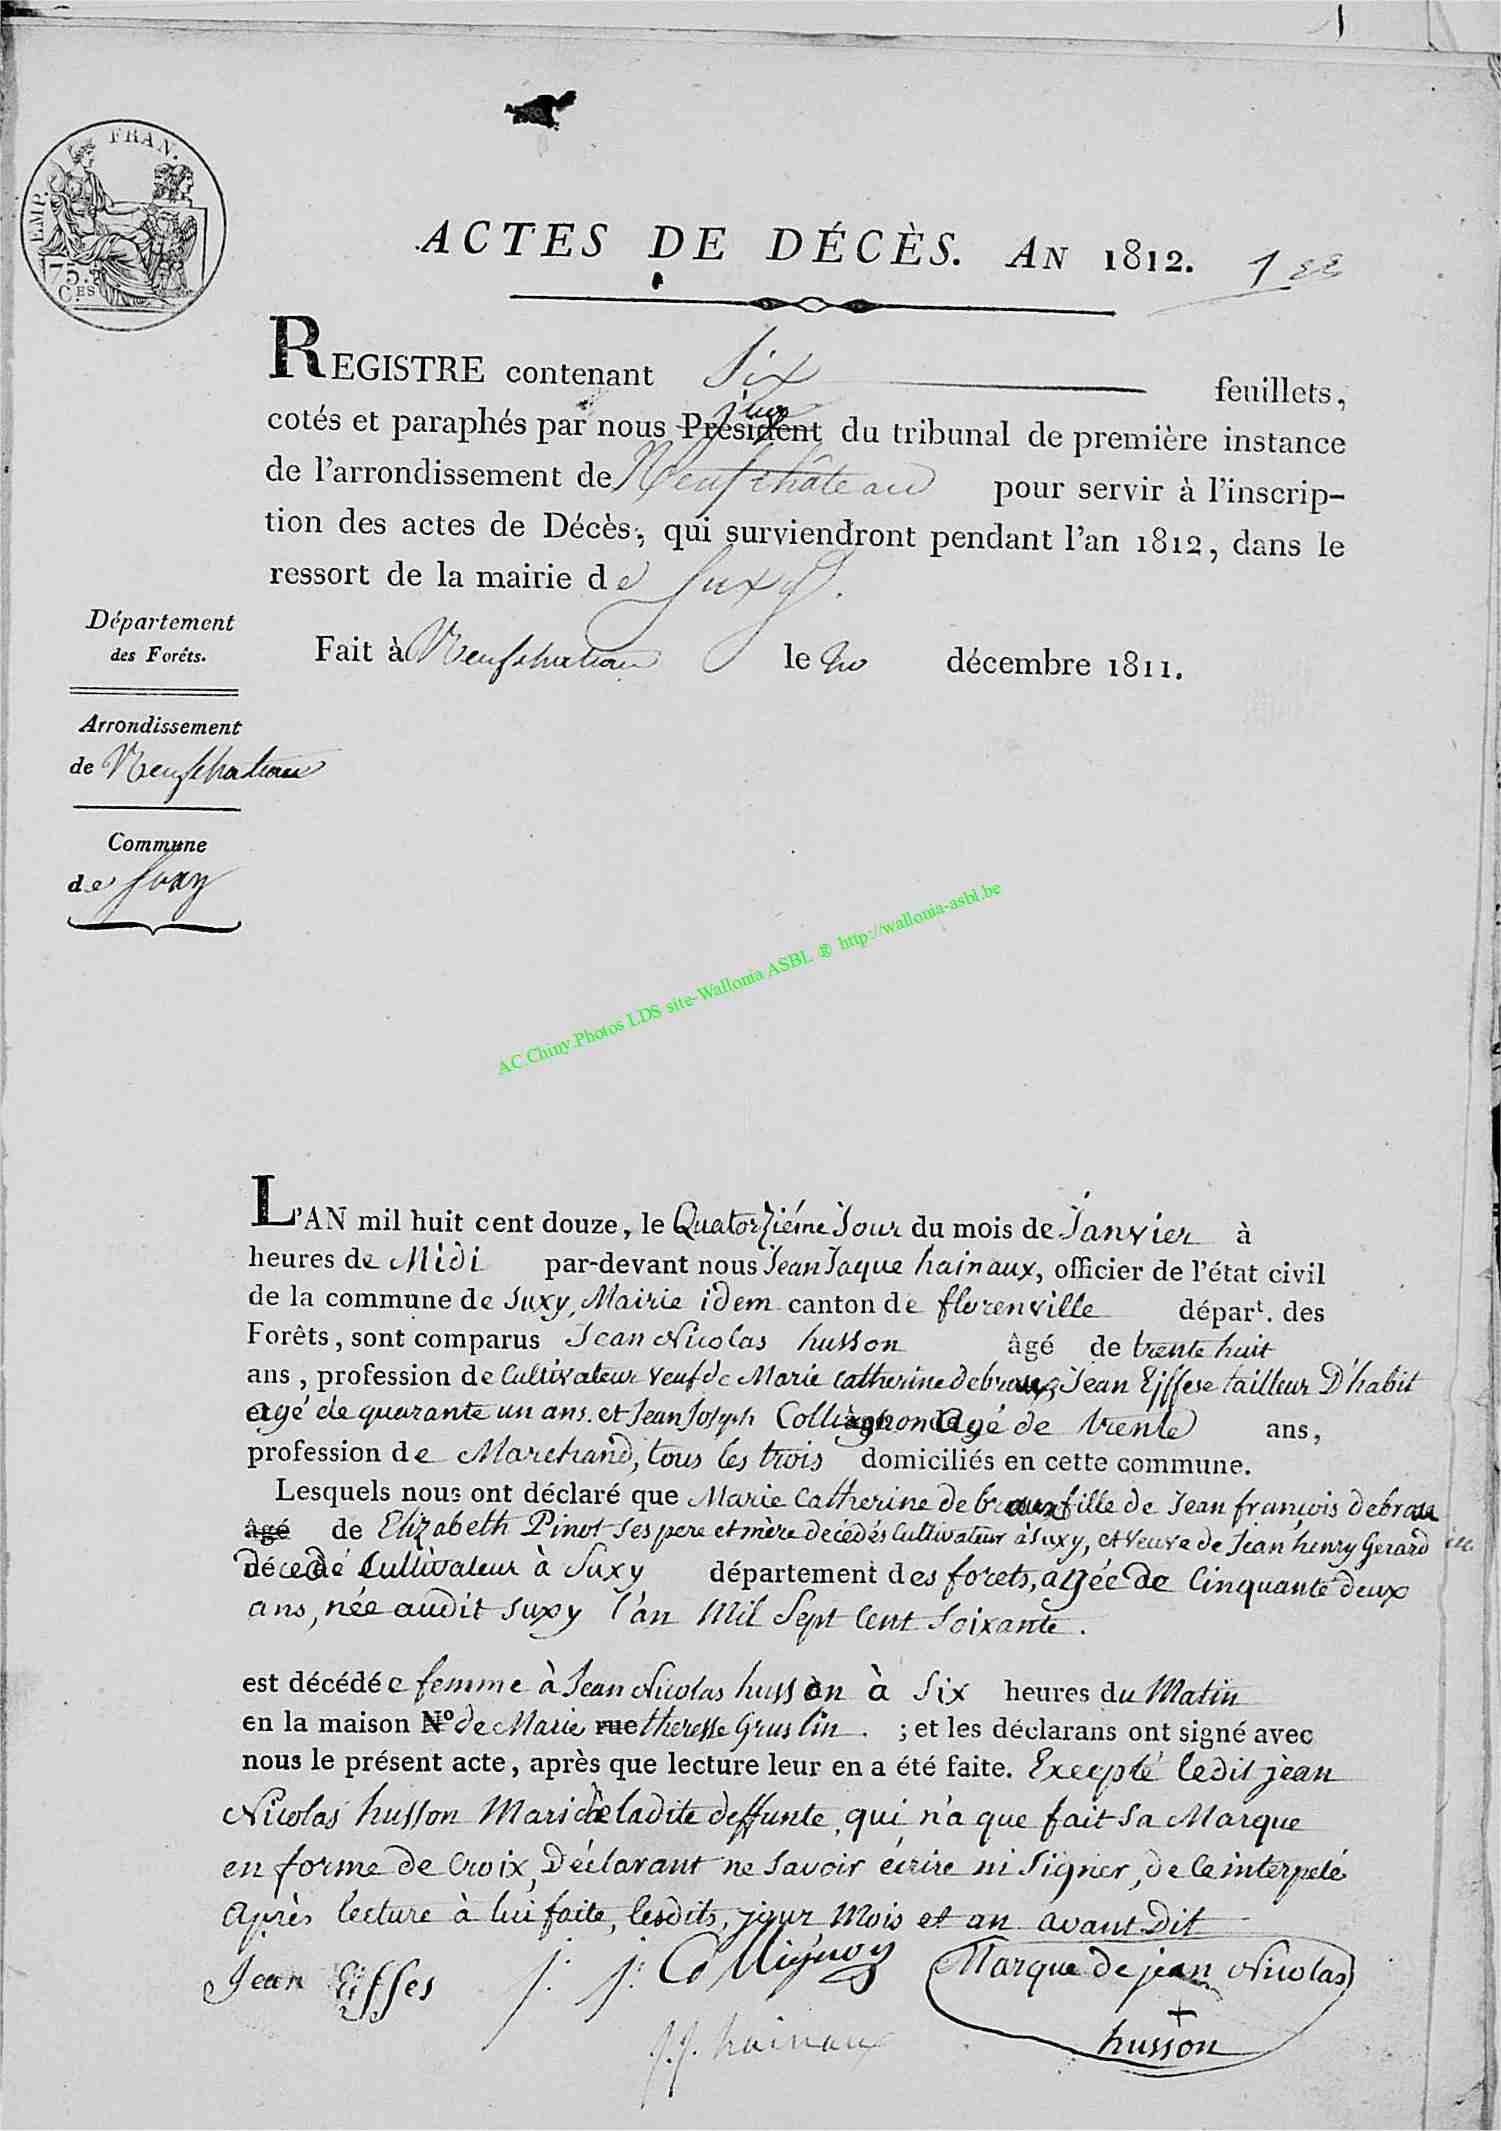 1
EMP. FRAN.
75. C.ES
ACTES DE DÉCÈS. AN 1812.
REGISTRE contenant Six feuillets,
cotés et paraphés par nous Président juge du tribunal de première instance
de l'arrondissement de Neufchâteau pour servir à l'inscrip-
tion des actes de Décès, qui surviendront pendant l'an 1812, dans le
ressort de la mairie de Suxy.
Fait à Neufchateau le décembre 1811.
Département
des Forêts.
Arrondissement
de Neufchateau
Commune
de Suxy
AC.Chiny.Photos LDS site-Wallonia ASBL @ http://wallonia-asbl.be
L'AN mil huit cent douze, le Quatorziéme Jour du mois de Janvier à
heures de Midi par-devant nous Jean Jaque hainaux, officier de l'état civil
de la commune de Suxy, Mairie idem canton de florenville départ. des
Forêts, sont comparus Jean Nicolas husson âgé de trente huit
ans, profession de Cultivateur veuf de Marie Catherine debraux, Jean Eiffese tailleur D'habit
agé de quarante un ans. et Jean Joseph Collignon agé de trente ans,
profession de Marchand, tous les trois domiciliés en cette commune.
Lesquels nous ont déclaré que Marie Catherine debraux fille de Jean françois debraux
âgé de Elizabeth Pinot ses pere et mère decédés Cultivateur à Suxy, et veuve de Jean henry Gerard
décedé Cultivateur à Suxy département des forets, agée de Cinquante deux
ans, née audit Suxy l'an Mil Sept Cent Soixante.
est décédée femme à Jean Nicolas husson à Six heures du Matin
en la maison N° de Marie rue theresse Gruslin. ; et les déclarans ont signé avec
nous le présent acte, après que lecture leur en a été faite. Excepté ledit jean
Nicolas husson Mari de ladite deffunte, qui n'a que fait sa Marque
en forme de Croix, Déclarant ne savoir écrire ni Signer, de ce interpelé
Après lecture à lui faite, lesdits, jour Mois et an avant Dit
Jean Eiffes j: j: Collignon Marque de jean Nicolas
+
husson
j.j. hainaux